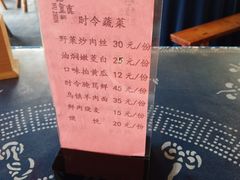 时令蔬菜
野菜炒肉丝 30 元/份
油焖嫩茭白 25 元/份
口味拍黄瓜 12 元/份
时令腌笃鲜 45 元/份
乌镇羊肉面 35 元/份
鲜肉烧麦 15 元/份
烧 饼 20 元/份